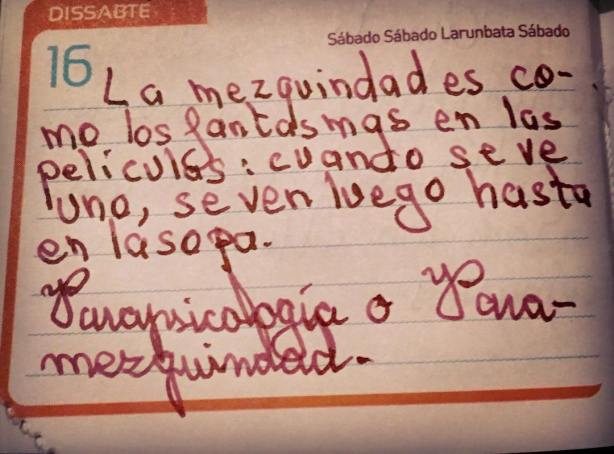 DISSABTE
Sábado Sábado Larunbata Sábado
16 La mezquindad es co-
mo los fantasmas en las
películas: cuando se ve
uno, se ven luego hasta
en la sopa.
Parapsicología o Para-
mezquindad.-